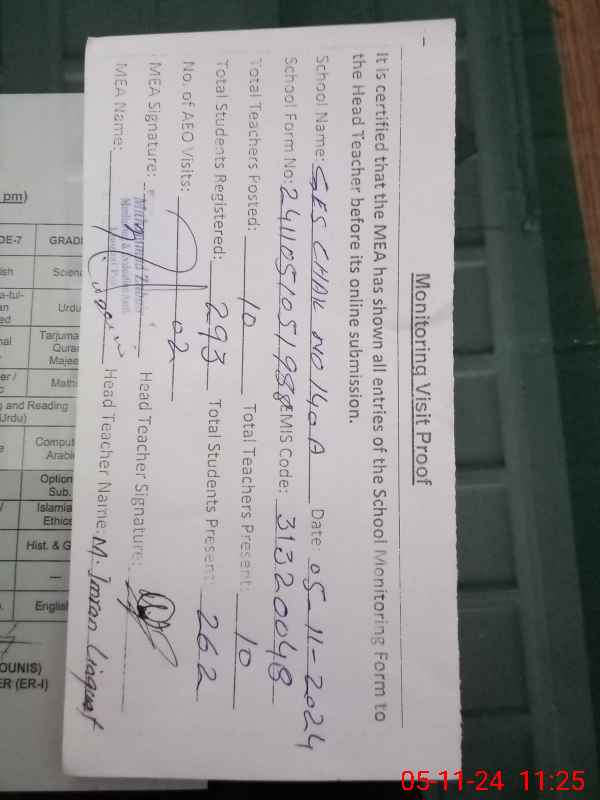 Monitoring Visit Proof
It is certified that the MEA has shown all entries of the School Monitoring Form to
the Head Teacher before its online submission.
School Name: GES CHAK NO 140 A Date: 05-11-2024
School Form No: EMIS Code: 31320048
Total Teachers Posted: 10 Total Teachers Present: 10
Total Students Registered: 293 Total Students Present: 262
No. of AEO Visits: 02
MEA Signature: Head Teacher Signature:
MEA Name: Head Teacher Name: M. Imran Liaquat
pm)
DE-7 GRAD
ish Scien
a-tul- Urdu
an
ed
nal Tarjuma
Qura
Majee
er / Math
g and Reading
Urdu)
Comput
Arabi
Option
Sub.
Islamia
Ethics
Hist. & G
—
Englis
OUNIS)
ER (ER-I)
05-11-24 11:25